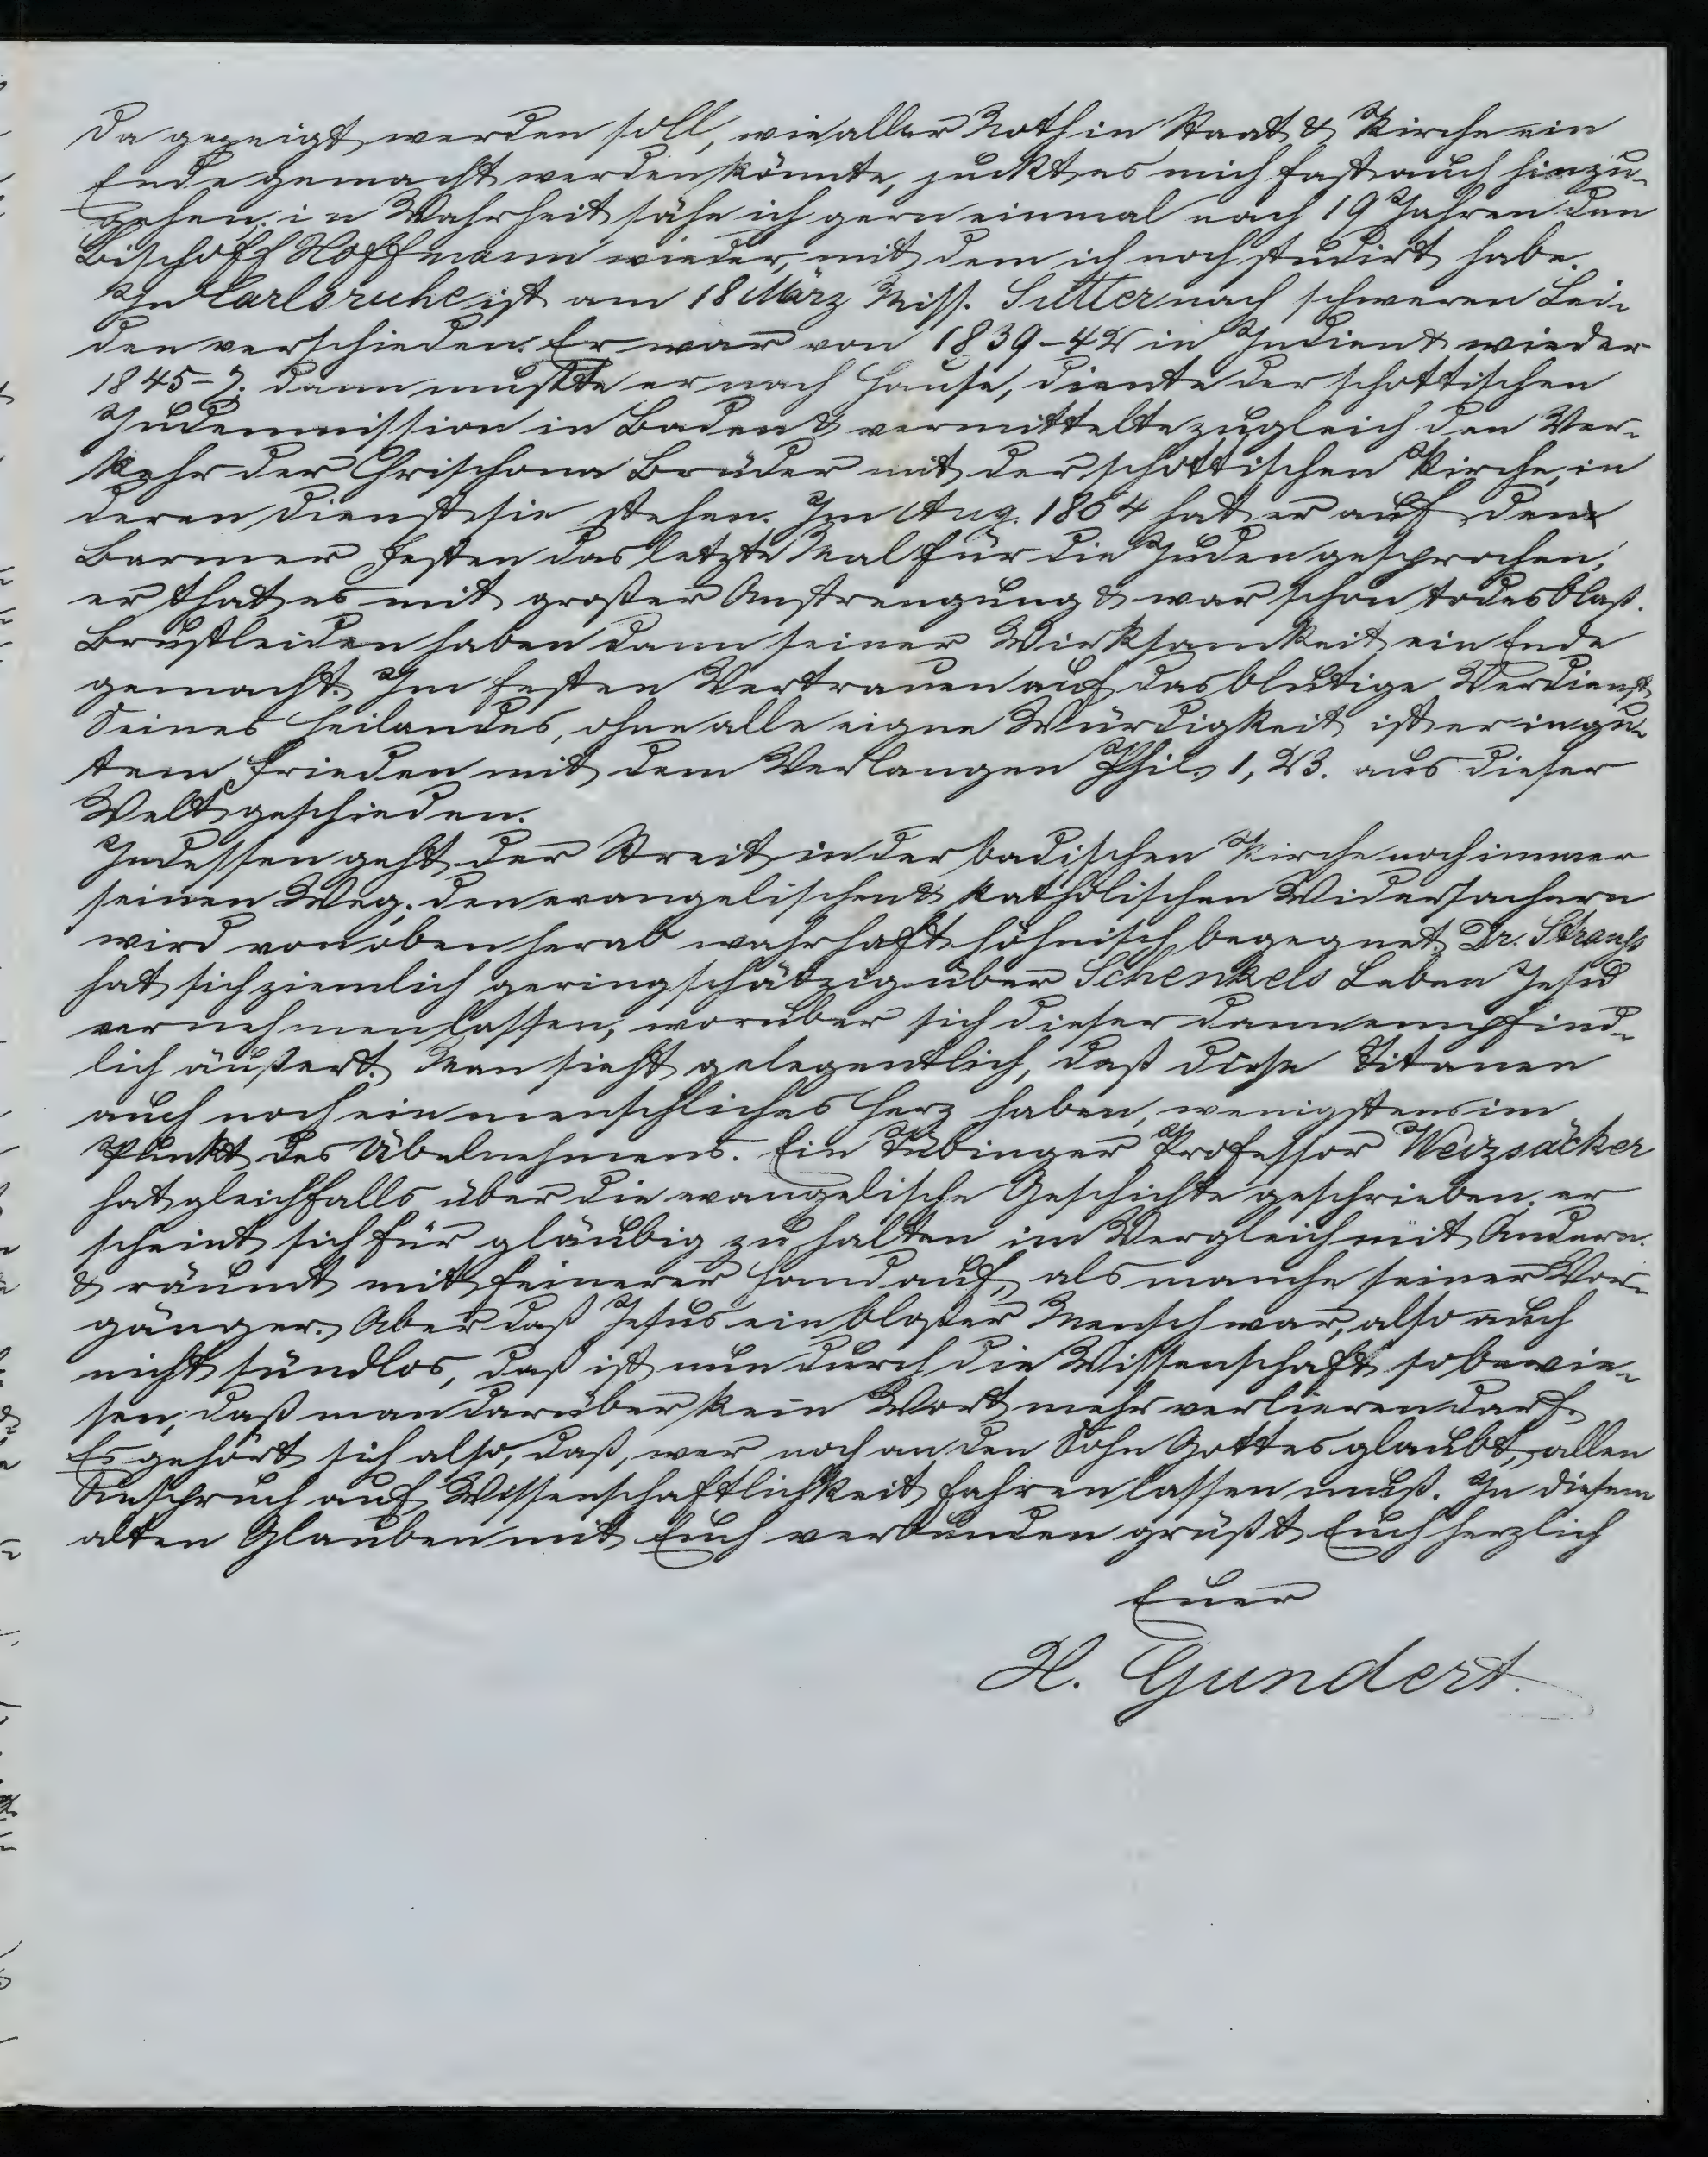 da gezeigt werden soll, wie aller Noth in Staat & Kirche ein
Ende gemacht werden könnte, zuckt es mich fast auch hinzu-
gehen: in Wahrheit sähe ich gern einmal nach 19 Jahren den
Bischoff Hoffmann wieder, mit dem ich noch studirt habe.
In Carlsruhe ist am 18 März Miss. Sutter nach schweren Lei-
den verschieden. Er war von 1839-42 in Indien & wieder
1845- dann mußte er nach Hause, diente der schottischen
Judenmission in Baden & vermittelte zugleich den Ver-
kehr der Chrischona Brüder mit der schottischen Kirche, in
deren Dienst sie stehen. Im Aug. 1864 hat er auf den
Barmer Festen das letzte Mal für die Juden gesprochen,
er that es mit großer Anstrengung & war schon todesblaß.
Brustleiden haben dann seiner Wirksamkeit ein Ende
gemacht. Im festen Vertrauen auf das blutige Verdienst
Seines Heilandes, ohne alle eigne Würdigkeit ist er in gu-
tem Frieden mit dem Verlangen Phil. 1, 23. aus dieser
Welt geschieden.
Indessen geht der Streit in der badischen Kirche noch immer
seinen Weg; den evangelischen & katholischen Widersachern
wird von oben herab wahrhaft höhnisch begegnet. Dr. Strauß
hat sich ziemlich geringschätzig über Schenkels Leben Jesu
vernehmen lassen, worüber sich dieser dann empfind-
lich äußert. Man sieht gelegentlich, daß diese Titanen
auch noch ein menschliches Herz haben, wenigstens im
Punkt des Übelnehmens. Ein Tübinger Professor Weizsäcker
hat gleichfalls über die evangelische Geschichte geschrieben. er
scheint sich für gläubig zu halten im Vergleich mit Andern.
& räumt mit feinerer Hand auf, als manche seiner Vor-
gänger. Aber daß Jesus ein bloßer Mensch war, also auch
nicht sündlos, daß ist nun durch die Wissenschaft so bewie-
sen, daß man darüber kein Wort mehr verlieren darf.
Es gehört sich also, daß, wer noch an den Sohn Gottes glaubt, allen
Anspruch auf Wissenschaftlichkeit fahren lassen muß. In diesem
alten Glauben mit Euch verbunden grüßt Euch herzlich
Euer
H. Gundert.